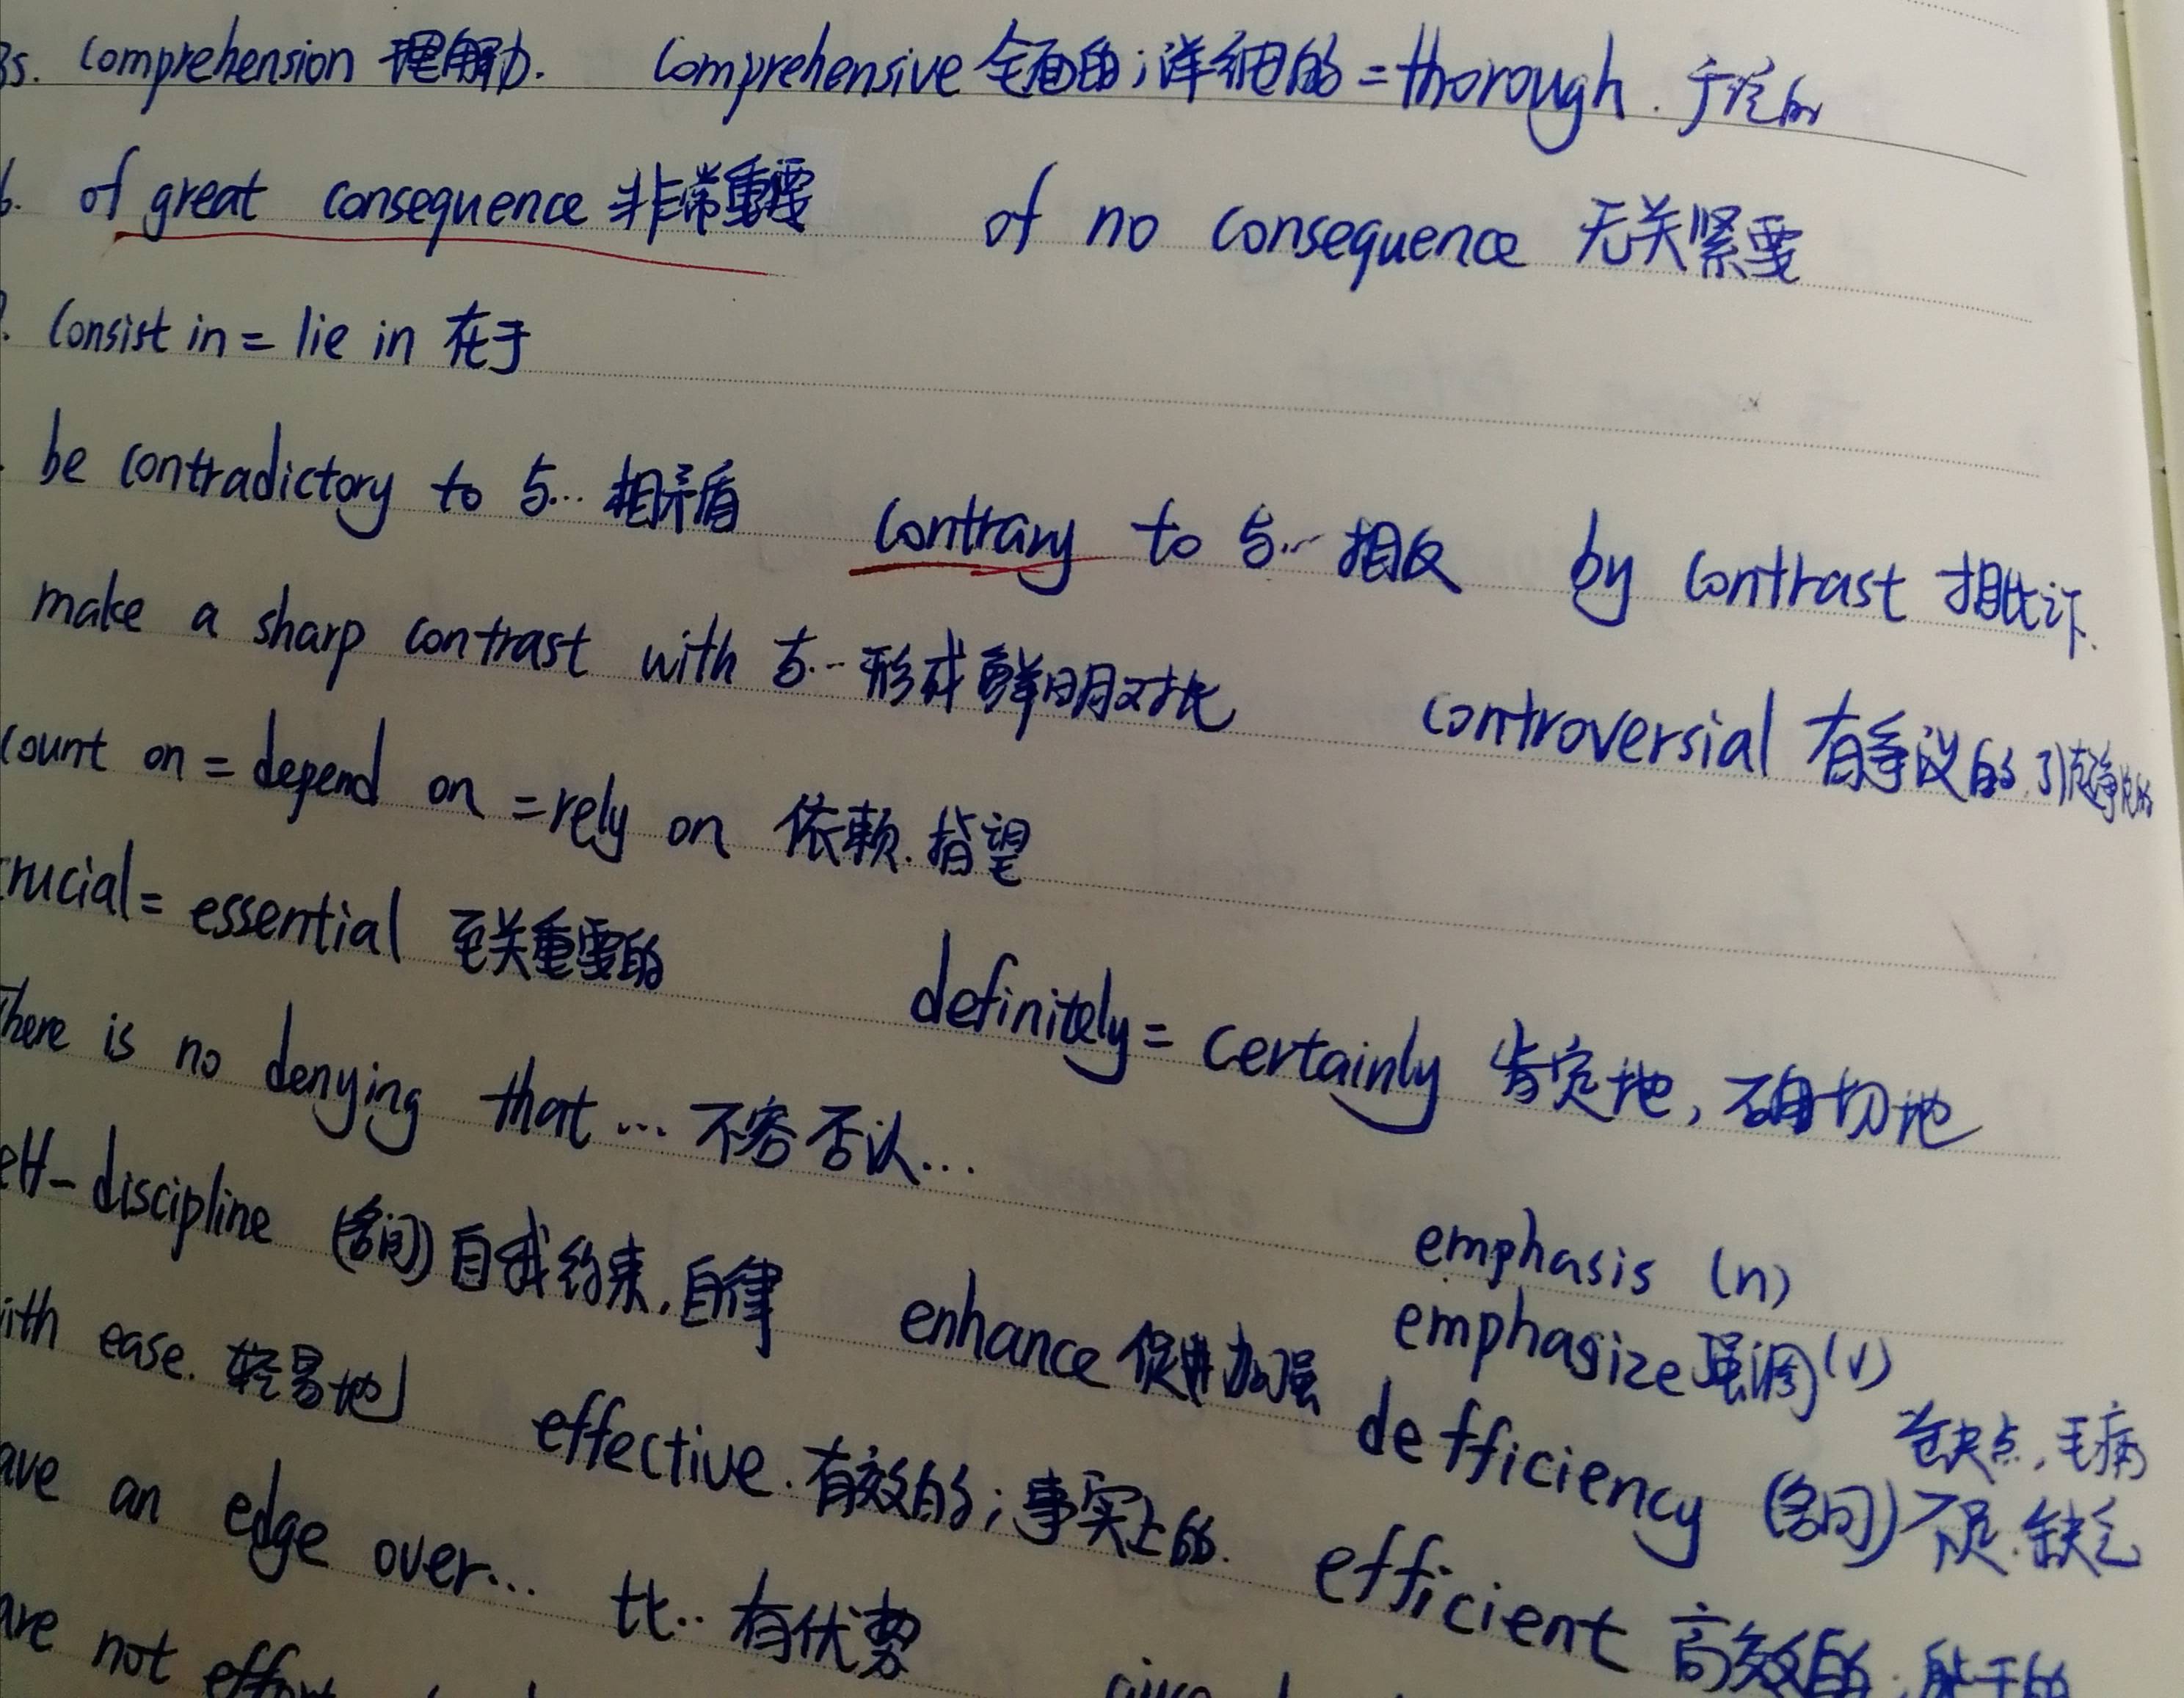 comprehension 理解力. comprehensive 全面的;详细的 = thorough.
of great consequence 非常重要 of no consequence 无关紧要
consist in = lie in 在于
be contradictory to 与... 相矛盾 contrary to 与... 相反 by contrast 相比之下.
make a sharp contrast with 与... 形成鲜明对比 controversial 有争议的.
count on = depend on = rely on 依赖.指望
crucial = essential 至关重要的
definitely = certainly 肯定地,确切地
There is no denying that ... 不容否认...
self-discipline (名词) 自我约束.自律 enhance 促进加强
emphasis (n)
emphasize 强调 (v)
with ease. 轻易地 effective.有效的;事实上的. defficiency (名词) 不足.缺乏
缺点,毛病
have an edge over... 比.. 有优势 efficient 高效的;能干的
are not